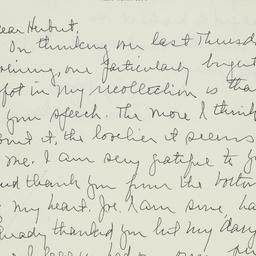 Dear Herbert.
On thinking over last Thursd
orning, one particularly bright
spot in my recollection is tha
your speech. The more I think
out it, the lovelier it seems
me. I am very grateful to y
nd thank you from the bottom
my heart. Joe, I am sure, ha
lready thanked you but my